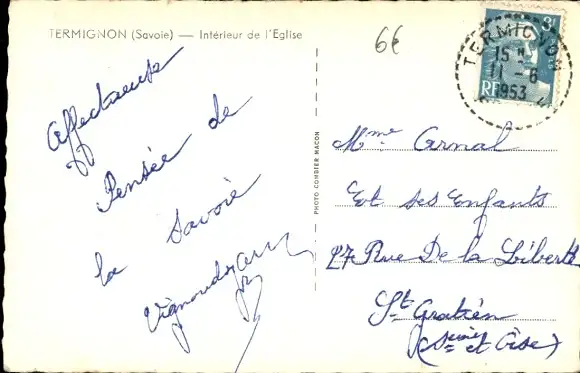 TERMIGNON (Savoie) — Intérieur de l'Eglise
6€
Affectueuse
Pensée de
la Savoie
PHOTO COMBIER MACON
8F
RF
TERMIGNON
15 H
11 - 6
1953
Mme Arnal
Et ses Enfants
27 Rue De la Liberté
St Gratien
(Seine et Oise)